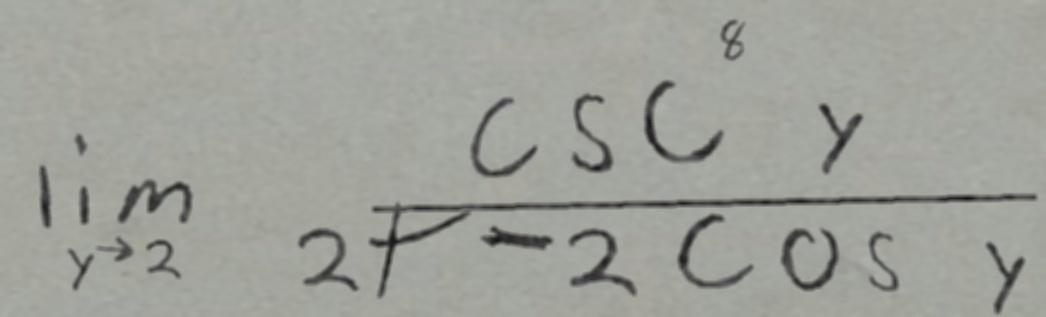 \lim_{y \to 2} \frac{\csc^8 y}{2 - 2 \cos y}